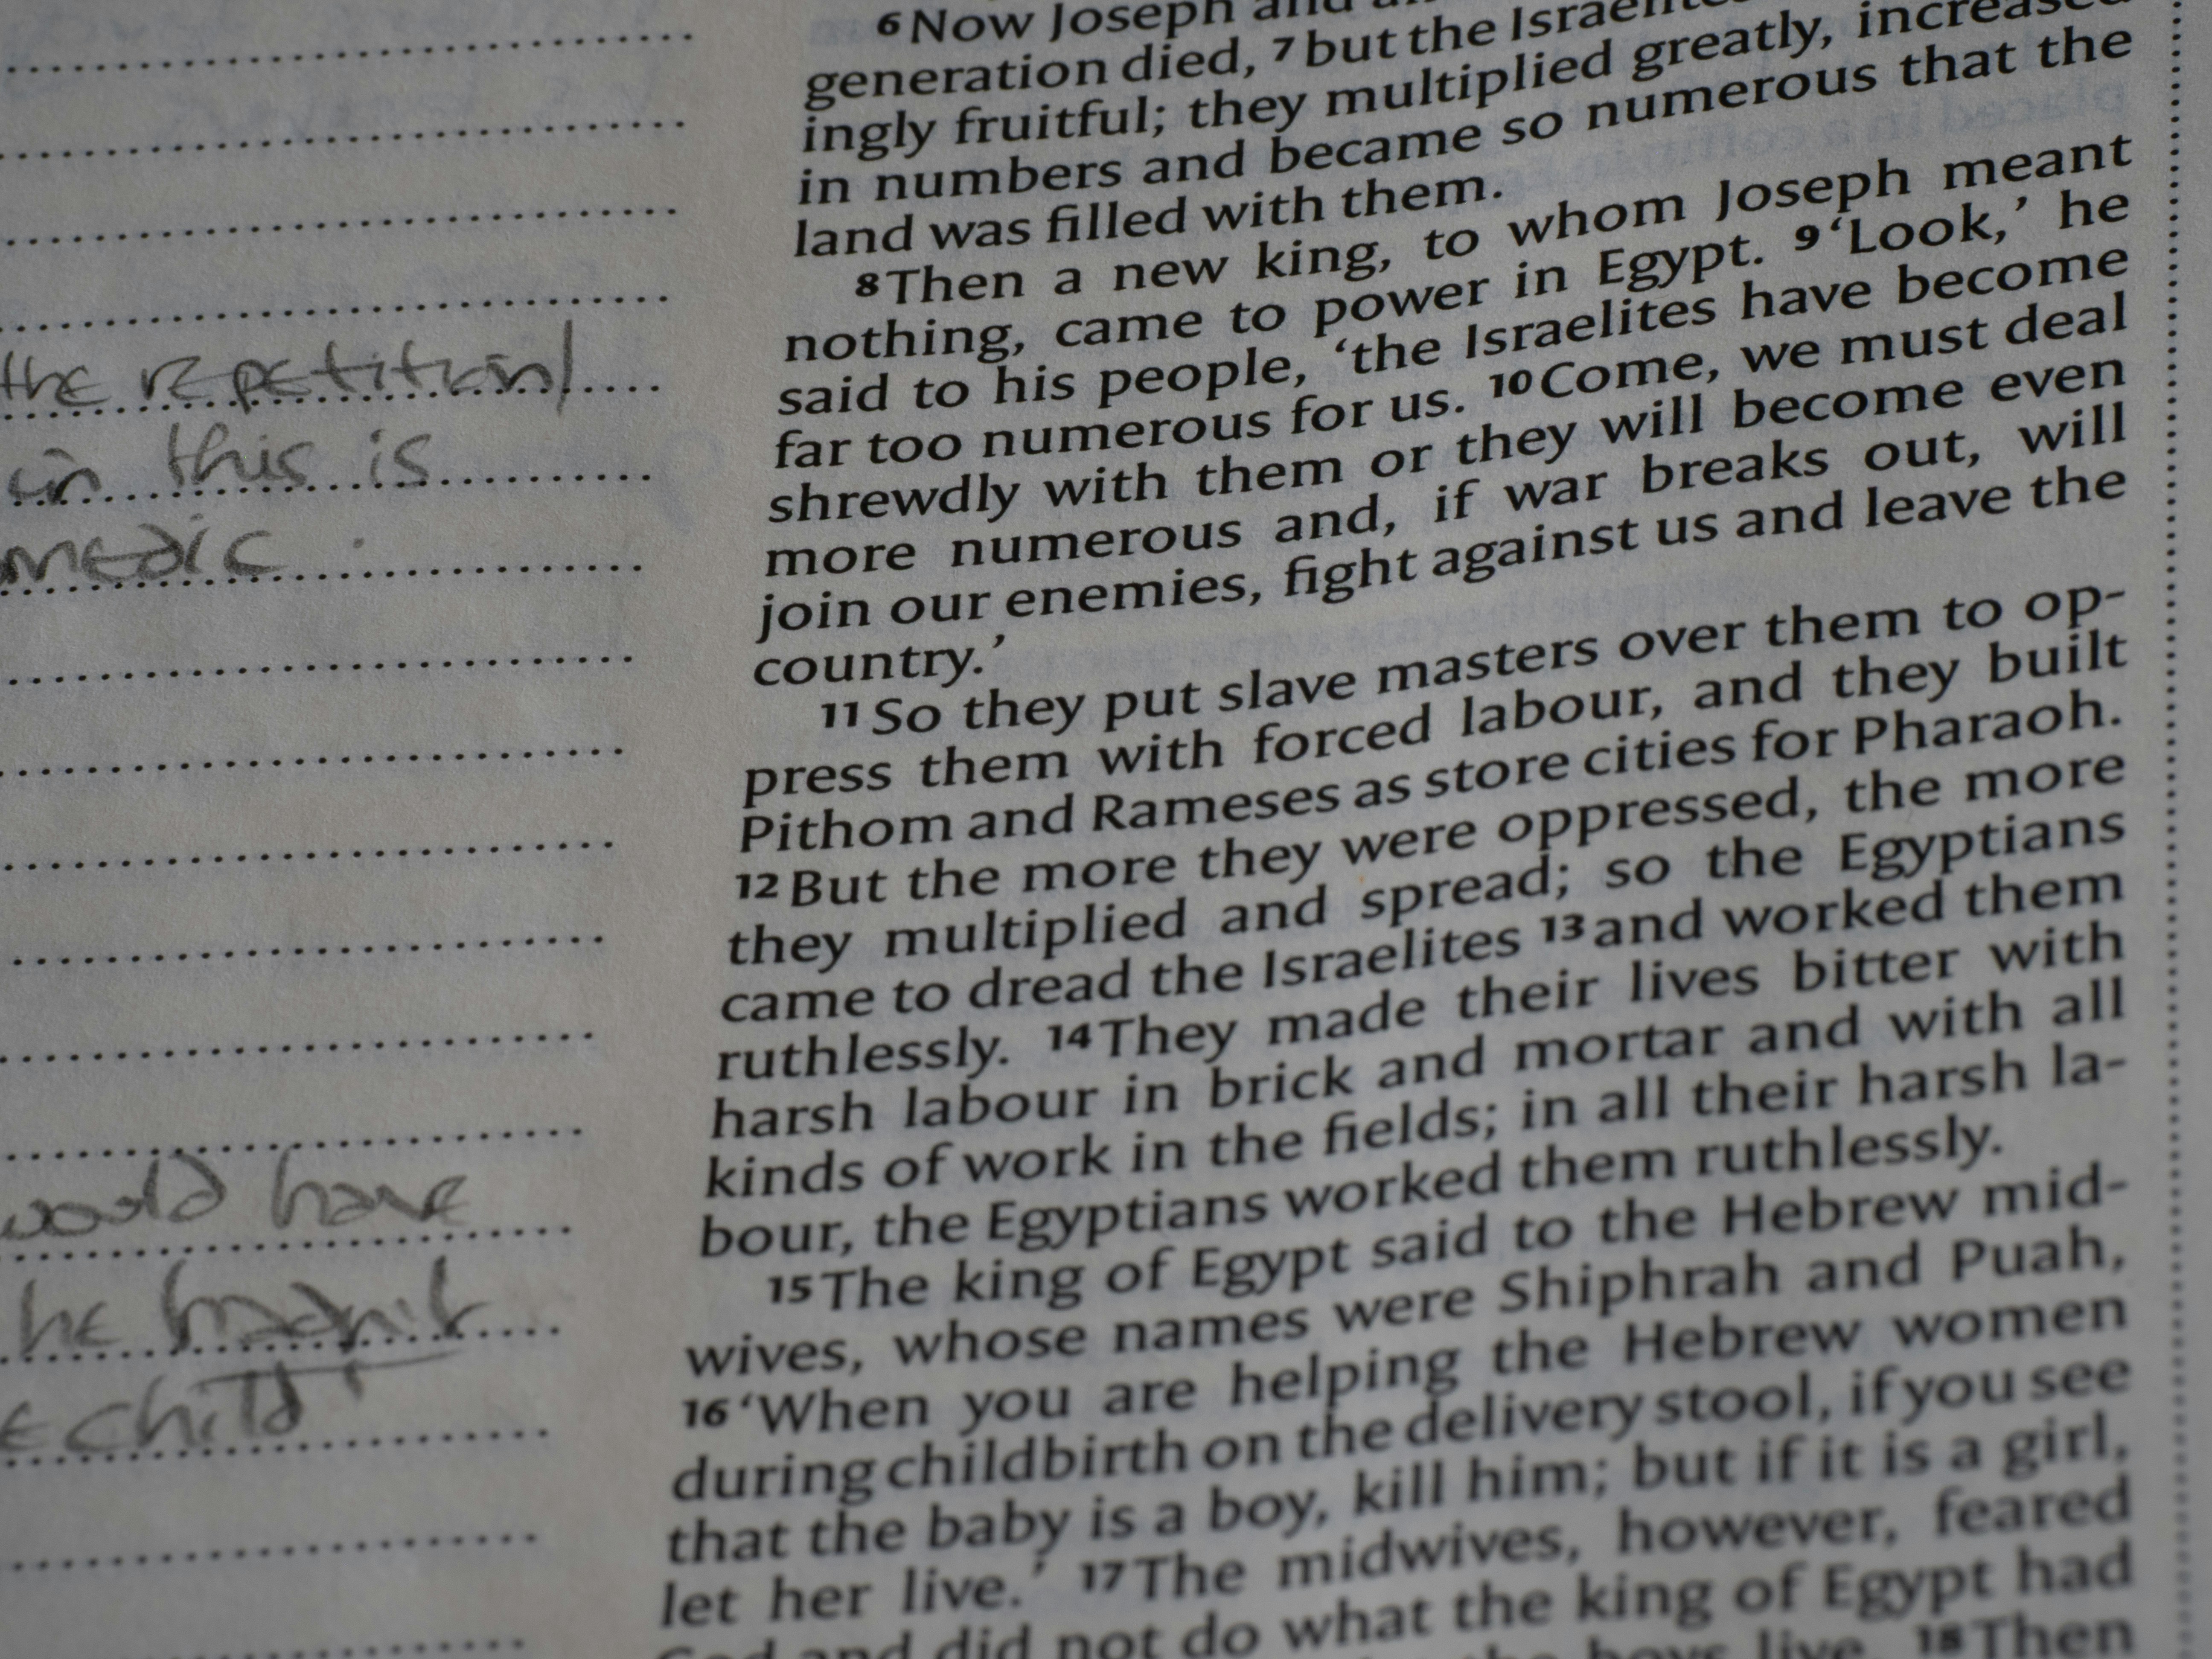 the repetition
in this is
would have
he
child
6 Now Joseph and
generation died, 7 but the Israelites
ingly fruitful; they multiplied greatly, increased
in numbers and became so numerous that the
land was filled with them.
8 Then a new king, to whom Joseph meant
nothing, came to power in Egypt. 9 ‘Look,’ he
said to his people, ‘the Israelites have become
far too numerous for us. 10 Come, we must deal
shrewdly with them or they will become even
more numerous and, if war breaks out, will
join our enemies, fight against us and leave the
country.’
11 So they put slave masters over them to op-
press them with forced labour, and they built
Pithom and Rameses as store cities for Pharaoh.
12 But the more they were oppressed, the more
they multiplied and spread; so the Egyptians
came to dread the Israelites 13 and worked them
ruthlessly. 14 They made their lives bitter with
harsh labour in brick and mortar and with all
kinds of work in the fields; in all their harsh la-
bour, the Egyptians worked them ruthlessly.
15 The king of Egypt said to the Hebrew mid-
wives, whose names were Shiphrah and Puah,
16 ‘When you are helping the Hebrew women
during childbirth on the delivery stool, if you see
that the baby is a boy, kill him; but if it is a girl,
let her live.’ 17 The midwives, however, feared
God and did not do what the king of Egypt had
the boys live. 18 Then